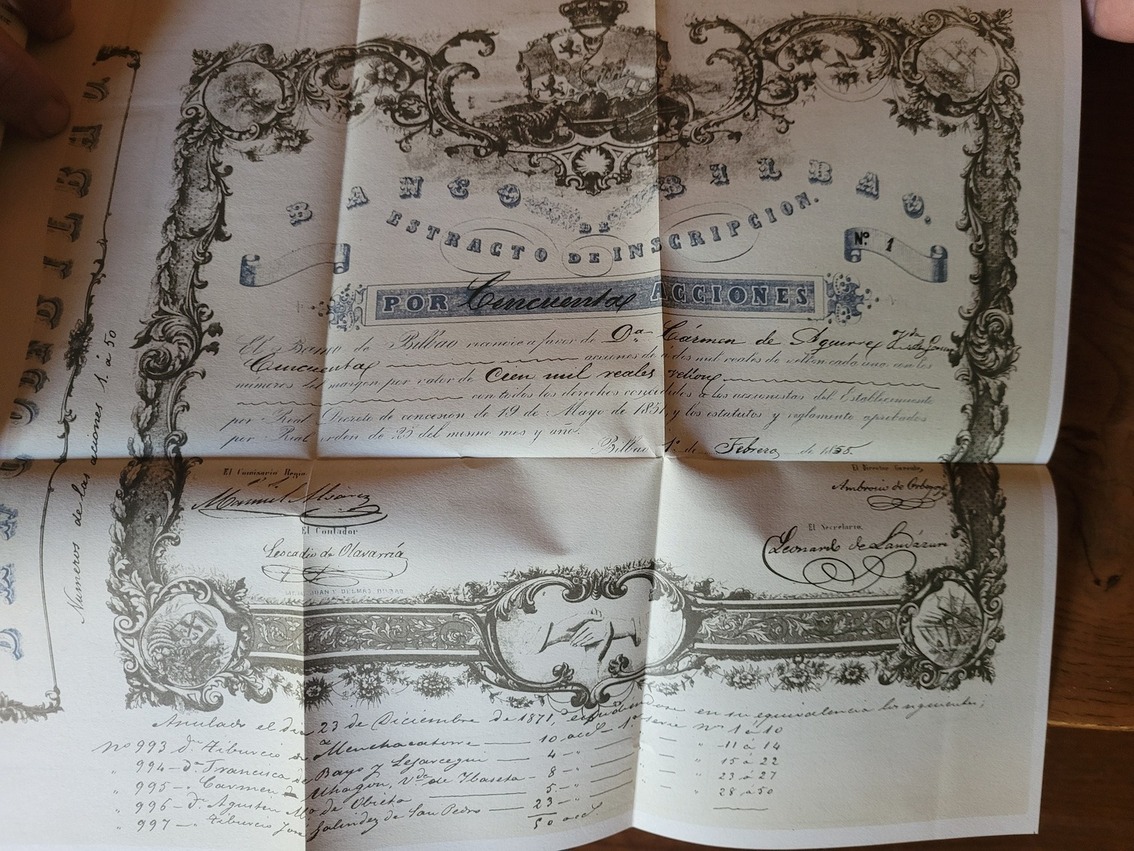 BANCO DE BILBAO.
ESTRACTO DE INSCRIPCION.
Nº 1
POR Cincuenta ACCIONES
El Banco de Bilbao reconoce a favor de Dª Cármen de Aguirre
Cincuenta acciones de á dos mil reales de vellon cada una con los
numeros del margen por valor de Cien mil reales vellon
con todos los derechos concedidos a los accionistas del Establecimiento
por Real Decreto de concesion de 19 de Mayo de 185 y los estatutos y reglamento aprobados
por Real orden de 25 del mismo mes y año.
Bilbao 1º de Febrero de 1855
El Comisario Regio
El Director Gerente,
Manuel
Ambrosio de Orbegozo
El Contador
El Secretario,
Leocadio de Olavarria
Leonardo de Landázuri
Numeros de las acciones 1 á 50
Anulado el dia 23 de Diciembre de 1871, en su equivalencia los siguientes;
nº 993 dⁿ Tiburcio de Menchacatorre — 10 acc — 1ª serie nos 1 á 10
" 994 — dª Francisca de Bayo y Lejarcegui — 4 — " 11 á 14
" 995 — " Carmen de Uhagon, Vda de Ybaseta — 8 — " 15 á 22
" 996 — dⁿ Agustin Mª de Obieta — 5 — " 23 á 27
" 997 — " Tiburcio José Galindez de San Pedro — 23 — " 28 á 50
50 acc